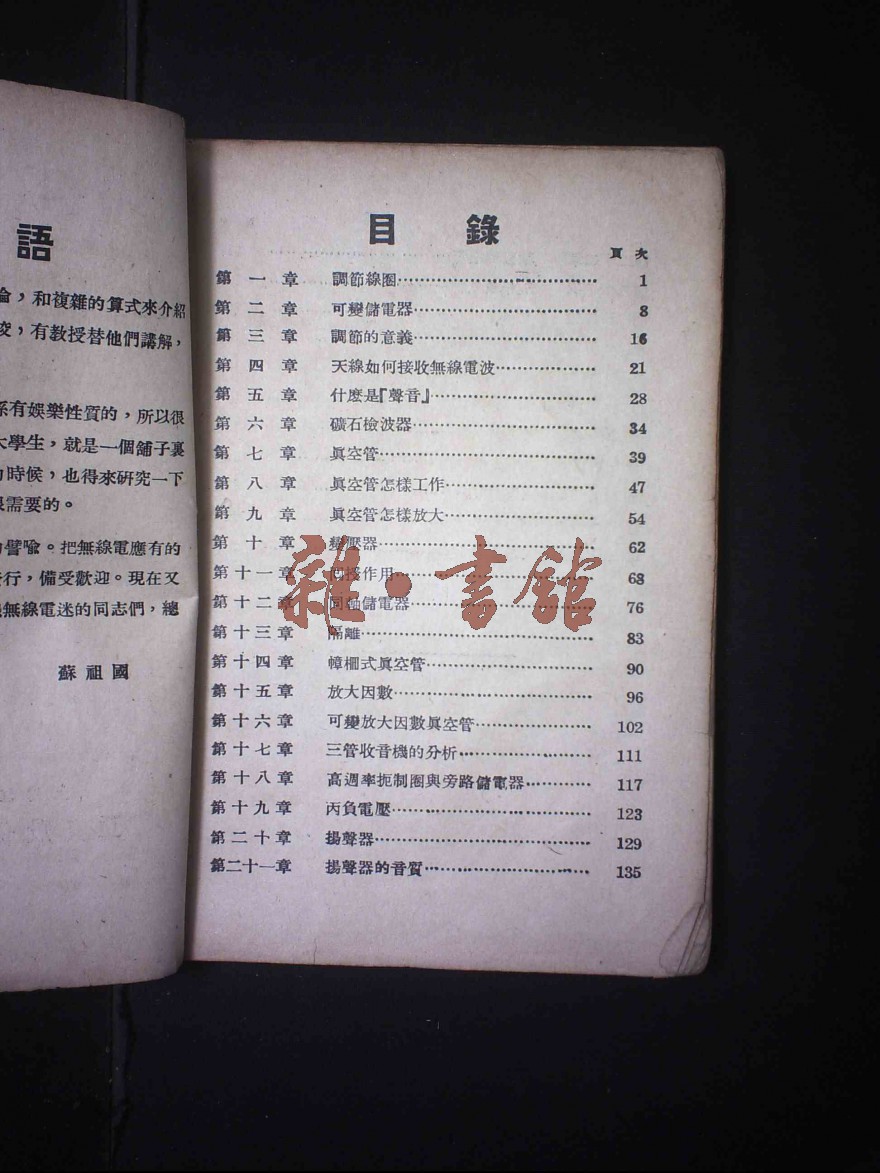 語
，和複雜的算式來介紹
，有教授替他們講解，
有娛樂性質的，所以很
大學生，就是一個舖子裏
時候，也得來研究一下
需要的。
譬喻。把無線電應有的
行，備受歡迎。現在又
無線電迷的同志們，總
蘇祖國
目錄
頁次
第一章 調節線圈 1
第二章 可變儲電器 8
第三章 調節的意義 16
第四章 天線如何接收無線電波 21
第五章 什麽是『聲音』 28
第六章 礦石檢波器 34
第七章 眞空管 39
第八章 眞空管怎樣工作 47
第九章 眞空管怎樣放大 54
第十章 變壓器 62
第十一章 回授作用 68
第十二章 同軸儲電器 76
第十三章 隔離 83
第十四章 幛柵式眞空管 90
第十五章 放大因數 96
第十六章 可變放大因數眞空管 102
第十七章 三管收音機的分析 111
第十八章 高週率扼制圈與旁路儲電器 117
第十九章 丙負電壓 123
第二十章 揚聲器 129
第二十一章 揚聲器的音質 135
雜·書館